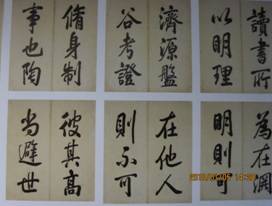 讀書所
以明理
濟源盤
谷考證
脩身制
事也陶
為在淵
明則可
在他人
則不可
彼其高
当避世